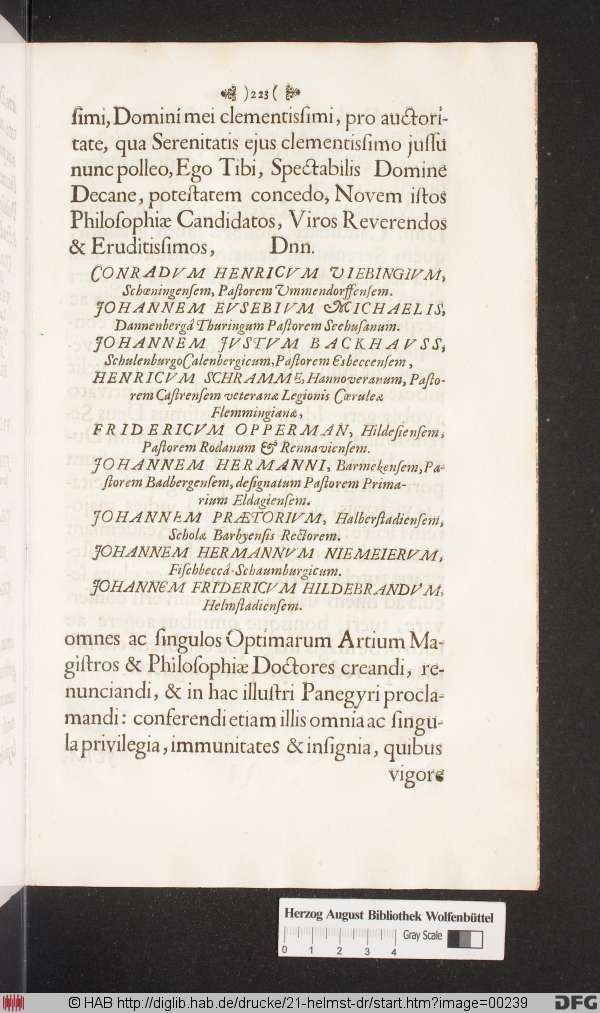 )223(
ſimi, Domini mei clementisſimi, pro auctori-
tate, qua Serenitatis ejus clementisſimo juſſu
nunc polleo, Ego Tibi, Spectabilis Domine
Decane, poteſtatem concedo, Novem iſtos
Philoſophiæ Candidatos, Viros Reverendos
& Eruditisſimos, Dnn.
CONRADVM HENRICVM VIEBINGIVM,
Schœningenſem, Paſtorem Vmmendorffenſem.
JOHANNEM EVSEBIVM MICHAELIS,
Dannenbergâ Thuringum Paſtorem Seehuſanum.
JOHANNEM JVSTVM BACKHAVSS,
Schulenburgo Calenbergicum, Paſtorem Esbeccenſem,
HENRICVM SCHRAMME, Hannoveranum, Paſto-
rem Caſtrenſem veteranæ Legionis Cœruleæ
Flemmingianæ,
FRIDERICVM OPPERMAN, Hildeſienſem,
Paſtorem Rodanum & Rennavienſem.
JOHANNEM HERMANNI, Barmekenſem, Pa-
ſtorem Badbergenſem, deſignatum Paſtorem Prima-
rium Eldagienſem.
JOHANNEM PRÆTORIVM, Halberſtadienſem,
Scholæ Barbyenſis Rectorem.
JOHANNEM HERMANNVM NIEMEIERVM,
Fiſchbeccâ-Schaumburgicum.
JOHANNEM FRIDERICVM HILDEBRANDVM,
Helmſtadienſem.
omnes ac ſingulos Optimarum Artium Ma-
giſtros & Philoſophiæ Doctores creandi, re-
nunciandi, & in hac illuſtri Panegyri procla-
mandi: conferendi etiam illis omnia ac ſingu-
la privilegia, immunitates & inſignia, quibus
vigore
Herzog August Bibliothek Wolfenbüttel
Gray Scale
0 1 2 3 4
© HAB http://diglib.hab.de/drucke/21-helmst-dr/start.htm?image=00239
DFG